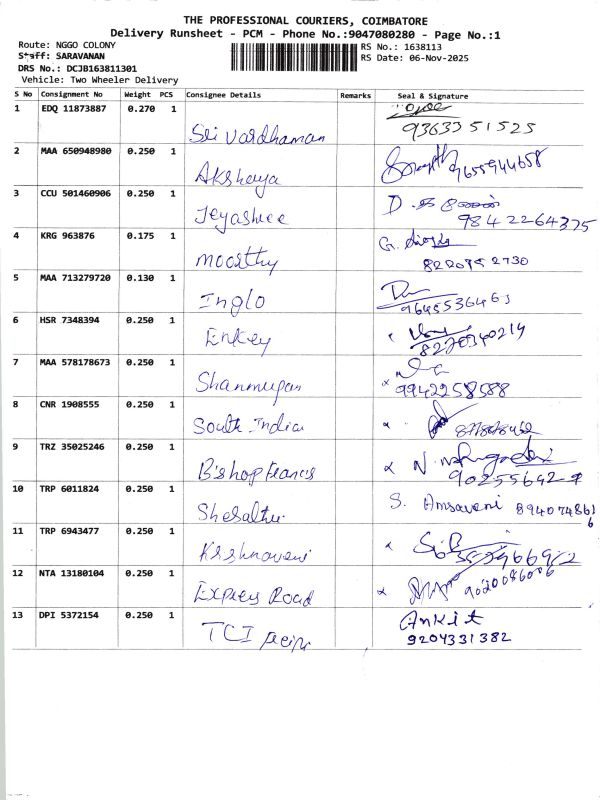 THE PROFESSIONAL COURIERS, COIMBATORE
Delivery Runsheet - PCM - Phone No.:9047080280 - Page No.:1
Route: NGGO COLONY
Staff: SARAVANAN
DRS No.: DCJB163811301
Vehicle: Two Wheeler Delivery
RS No.: 1638113
RS Date: 06-Nov-2025
S No Consignment No Weight PCS Consignee Details Remarks Seal & Signature
1 EDQ 11873887 0.270 1 Sri Vardhaman
9363351525
2 MAA 650948980 0.250 1 Akshaya 9655944658
3 CCU 501460906 0.250 1 Jeyashree D
9842264375
4 KRG 963876 0.175 1 Moorthy G.
5 MAA 713279720 0.130 1 Inglo
9645536463
6 HSR 7348394 0.250 1 Enkey
8270340214
7 MAA 578178673 0.250 1 Shanmugan
9942258588
8 CNR 1908555 0.250 1 South India
9 TRZ 35025246 0.250 1 Bishop Francis
10 TRP 6011824 0.250 1 S. Amsaveni
11 TRP 6943477 0.250 1 Krshnaveni
12 NTA 13180104 0.250 1 Express Road 9020086006
13 DPI 5372154 0.250 1 TCI Ankit
9204331382